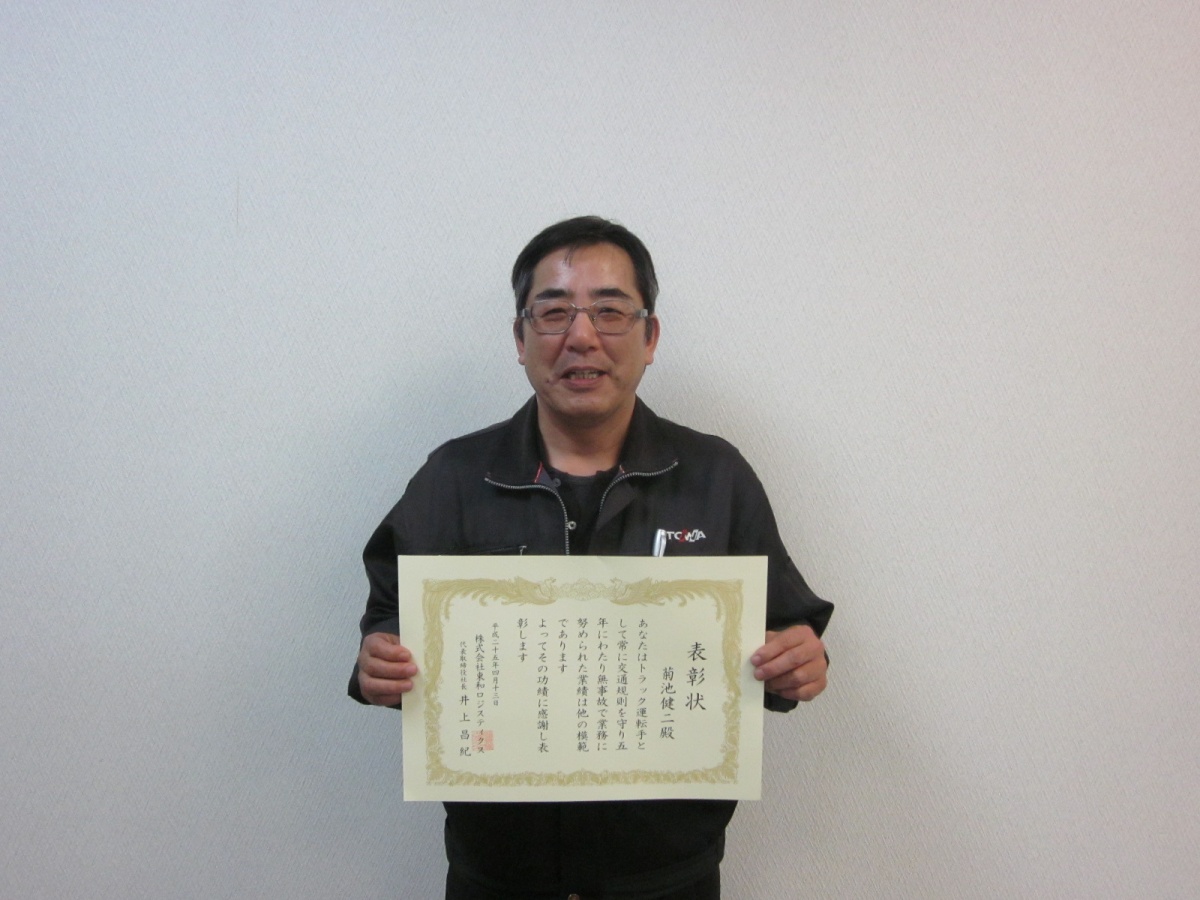 TOWA
表彰状
菊池健二殿
あなたはトラック運転手と
して常に交通規則を守り五
年にわたり無事故で業務に
努められた業績は他の模範
であります
よってその功績に感謝し表
彰します
平成二十五年四月十三日
株式会社東和ロジスティクス
代表取締役社長 井上昌紀